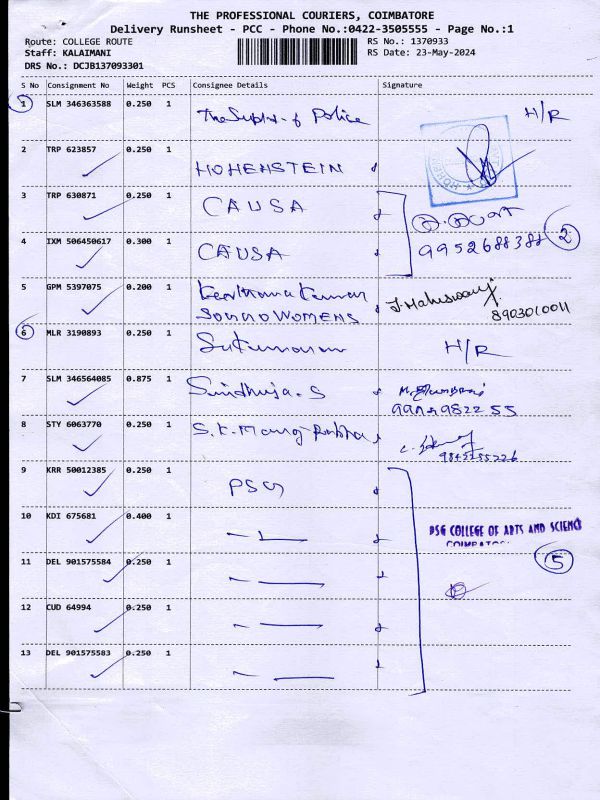 THE PROFESSIONAL COURIERS, COIMBATORE
Delivery Runsheet - PCC - Phone No.:0422-3505555 - Page No.:1
Route: COLLEGE ROUTE
RS No.: 1370933
Staff: KALAIMANI
RS Date: 23-May-2024
DRS No.: DCJB137093301
S No Consignment No Weight PCS Consignee Details Signature
1 SLM 346363588 0.250 1 The Supdt. of Police H/R
2 TRP 623857 0.250 1 HOHENSTEIN
3 TRP 630871 0.250 1 CAUSA
4 IXM 506450617 0.300 1 CAUSA
9952688388 2
5 GPM 5397075 0.200 1 Keerthana Kumar
SONNO WOMENS
J. Maheswari
8903010011
6 MLR 3190893 0.250 1 H/R
7 SLM 346564085 0.875 1 Sindhuja. S
8 STY 6063770 0.250 1
9 KRR 50012385 0.250 1 PSG
10 KDI 675681 0.400 1
PSG COLLEGE OF ARTS AND SCIENCE
COIMBATORE
11 DEL 901575584 0.250 1
5
12 CUD 64994 0.250 1
13 DEL 901575583 0.250 1